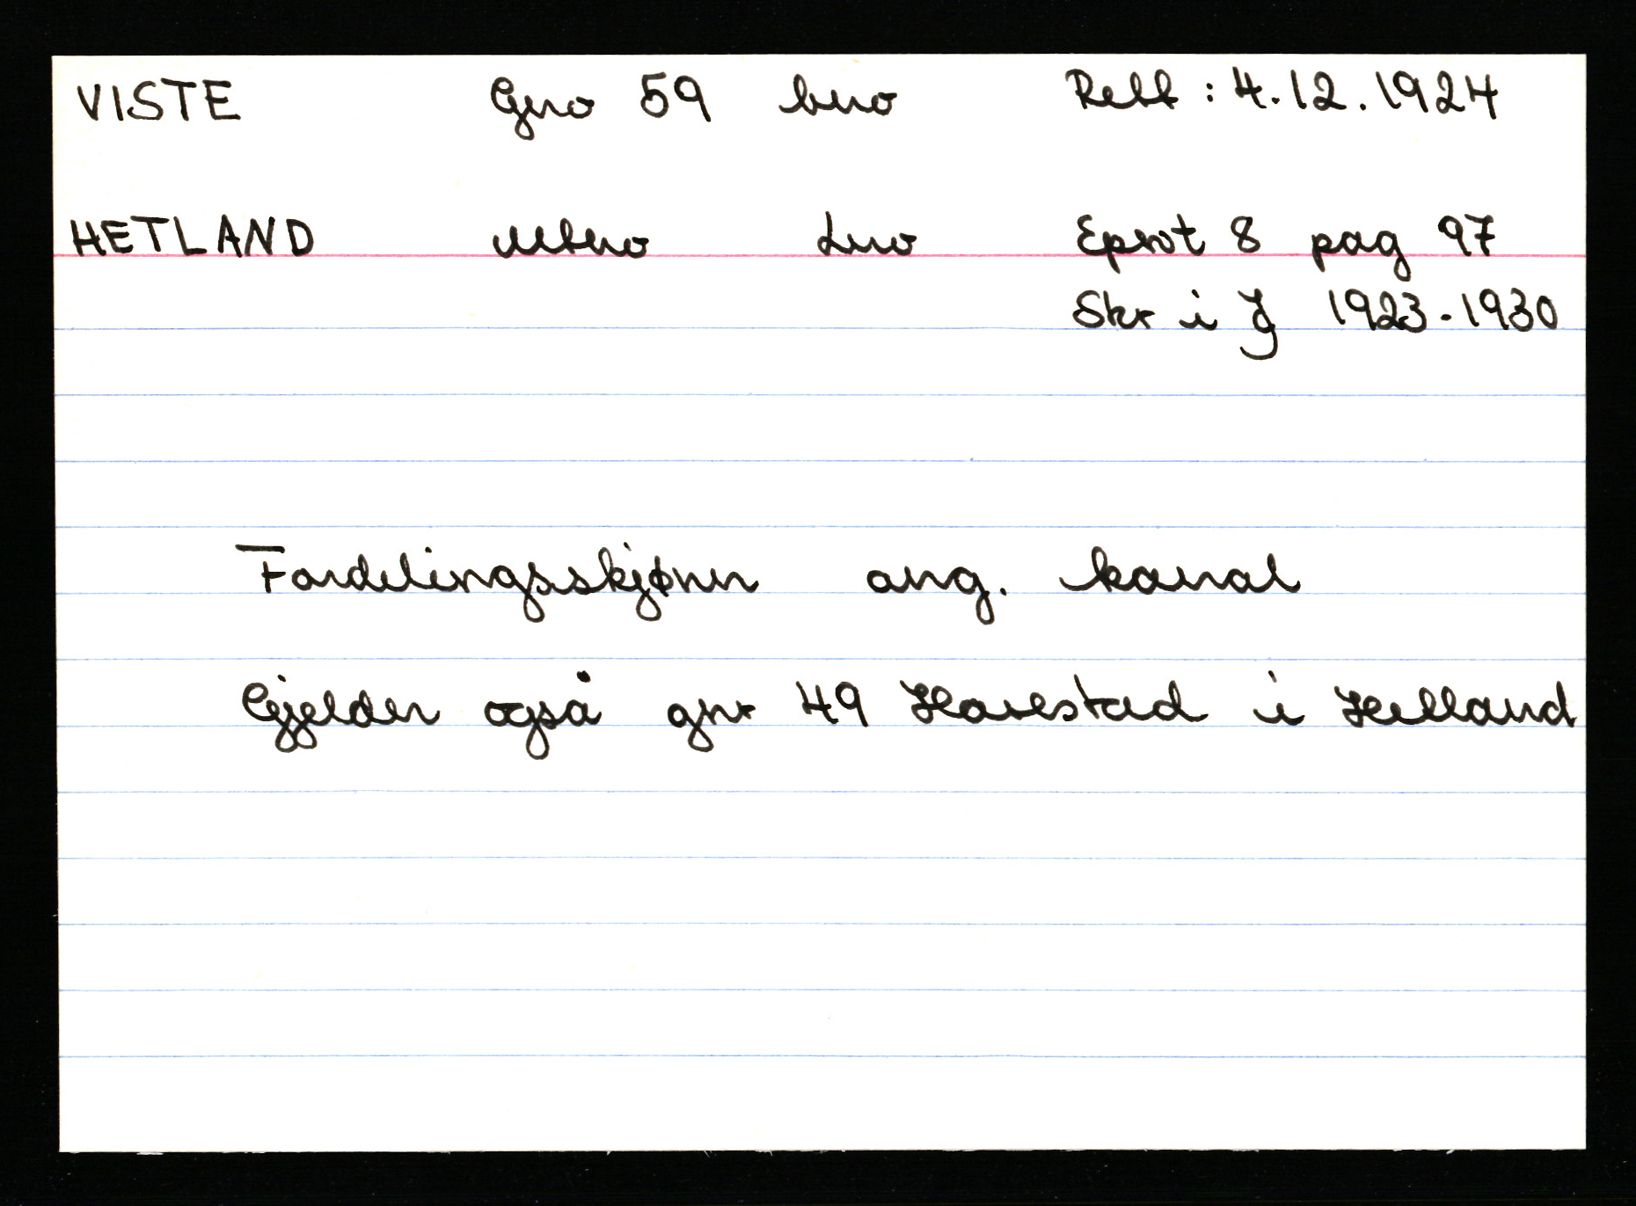 VISTE Gno 59 bno Rett : 4.12.1924
HETLAND Mtno Lno Eprot 8 pag 97
Skr i J 1923-1930
Fordelingsskjønn ang. kanal
Gjelder også gnr 49 Harestad i Hetland